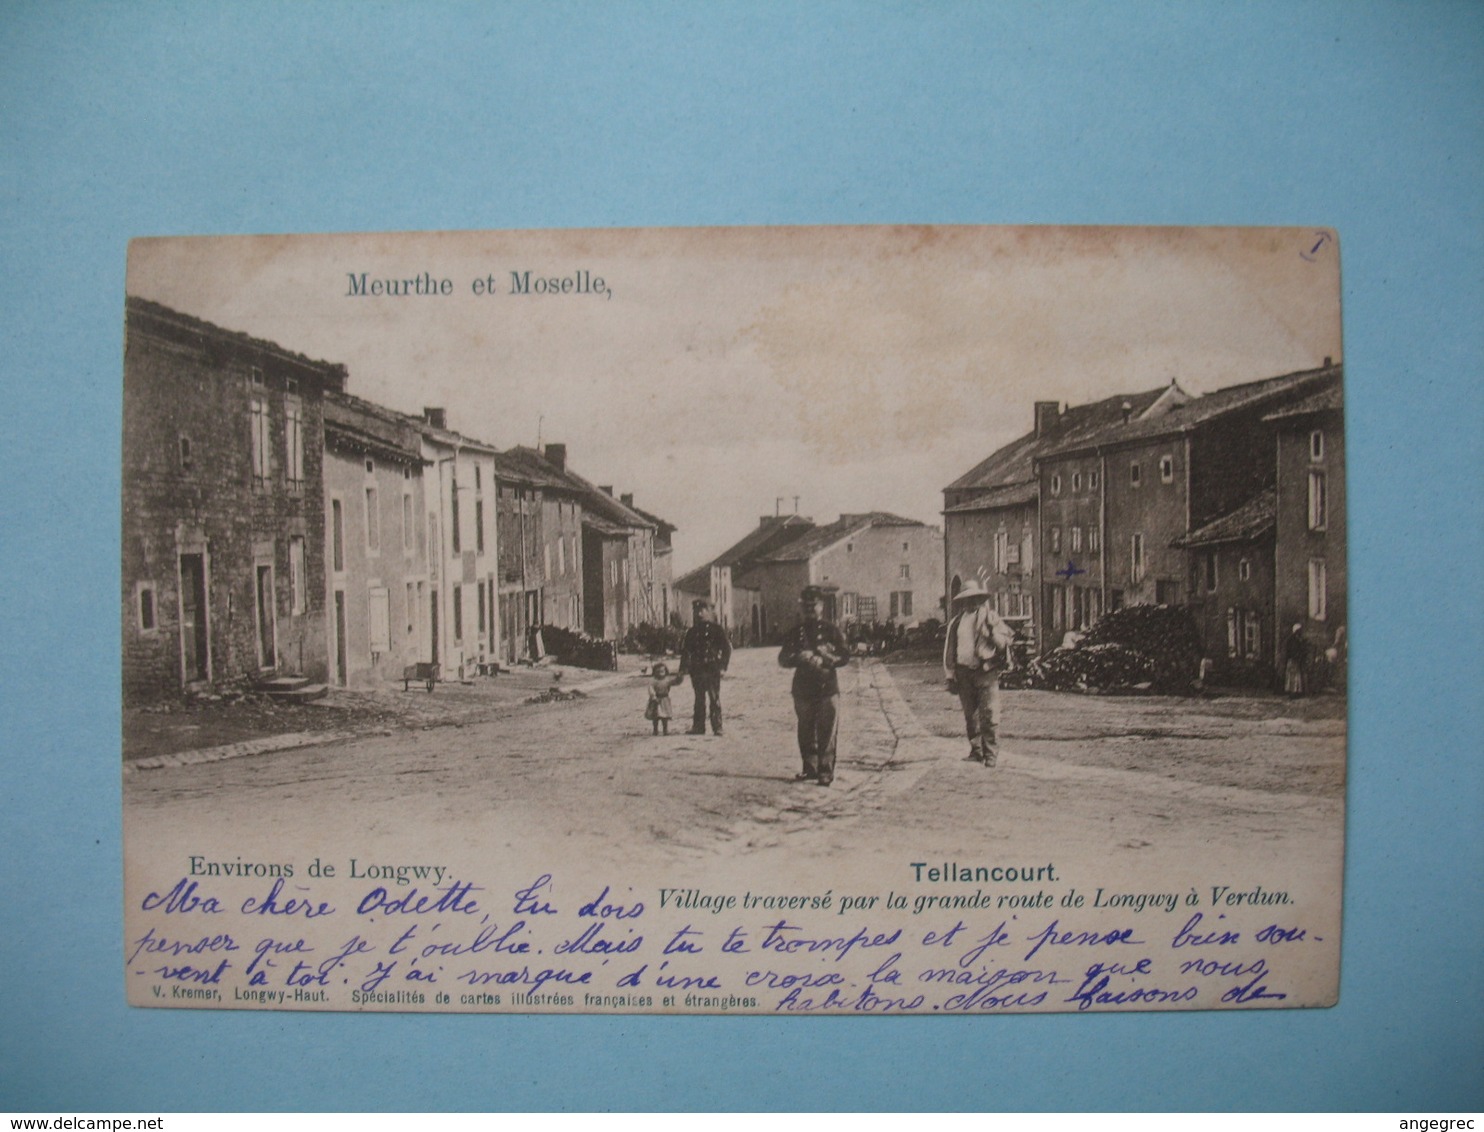 I
Meurthe et Moselle,
Environs de Longwy.
Tellancourt.
Village traversé par la grande route de Longwy à Verdun.
Ma chère Odette, tu dois
penser que je t'oublie. Mais tu te trompes et je pense bien sou-
-vent à toi. J'ai marqué d'une croix la maison que nous
habitons. Nous faisons de
V. Kremer, Longwy-Haut. Spécialités de cartes illustrées françaises et étrangères.
delcampe.net
angegrec